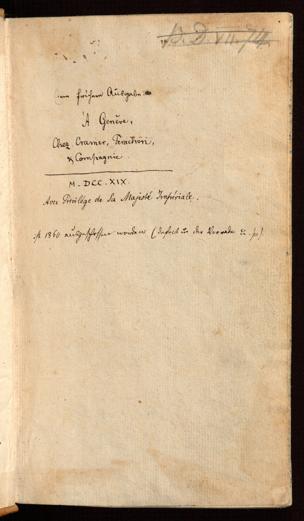 D. D. VII. 74.
frühere Ausgabe:
À Genève,
Chez Cramer, Perachon,
& Compagnie.
M. DCC. XIX.
Avec Privilége de Sa Majesté Impériale.
1860 worden ( in der Vorrede